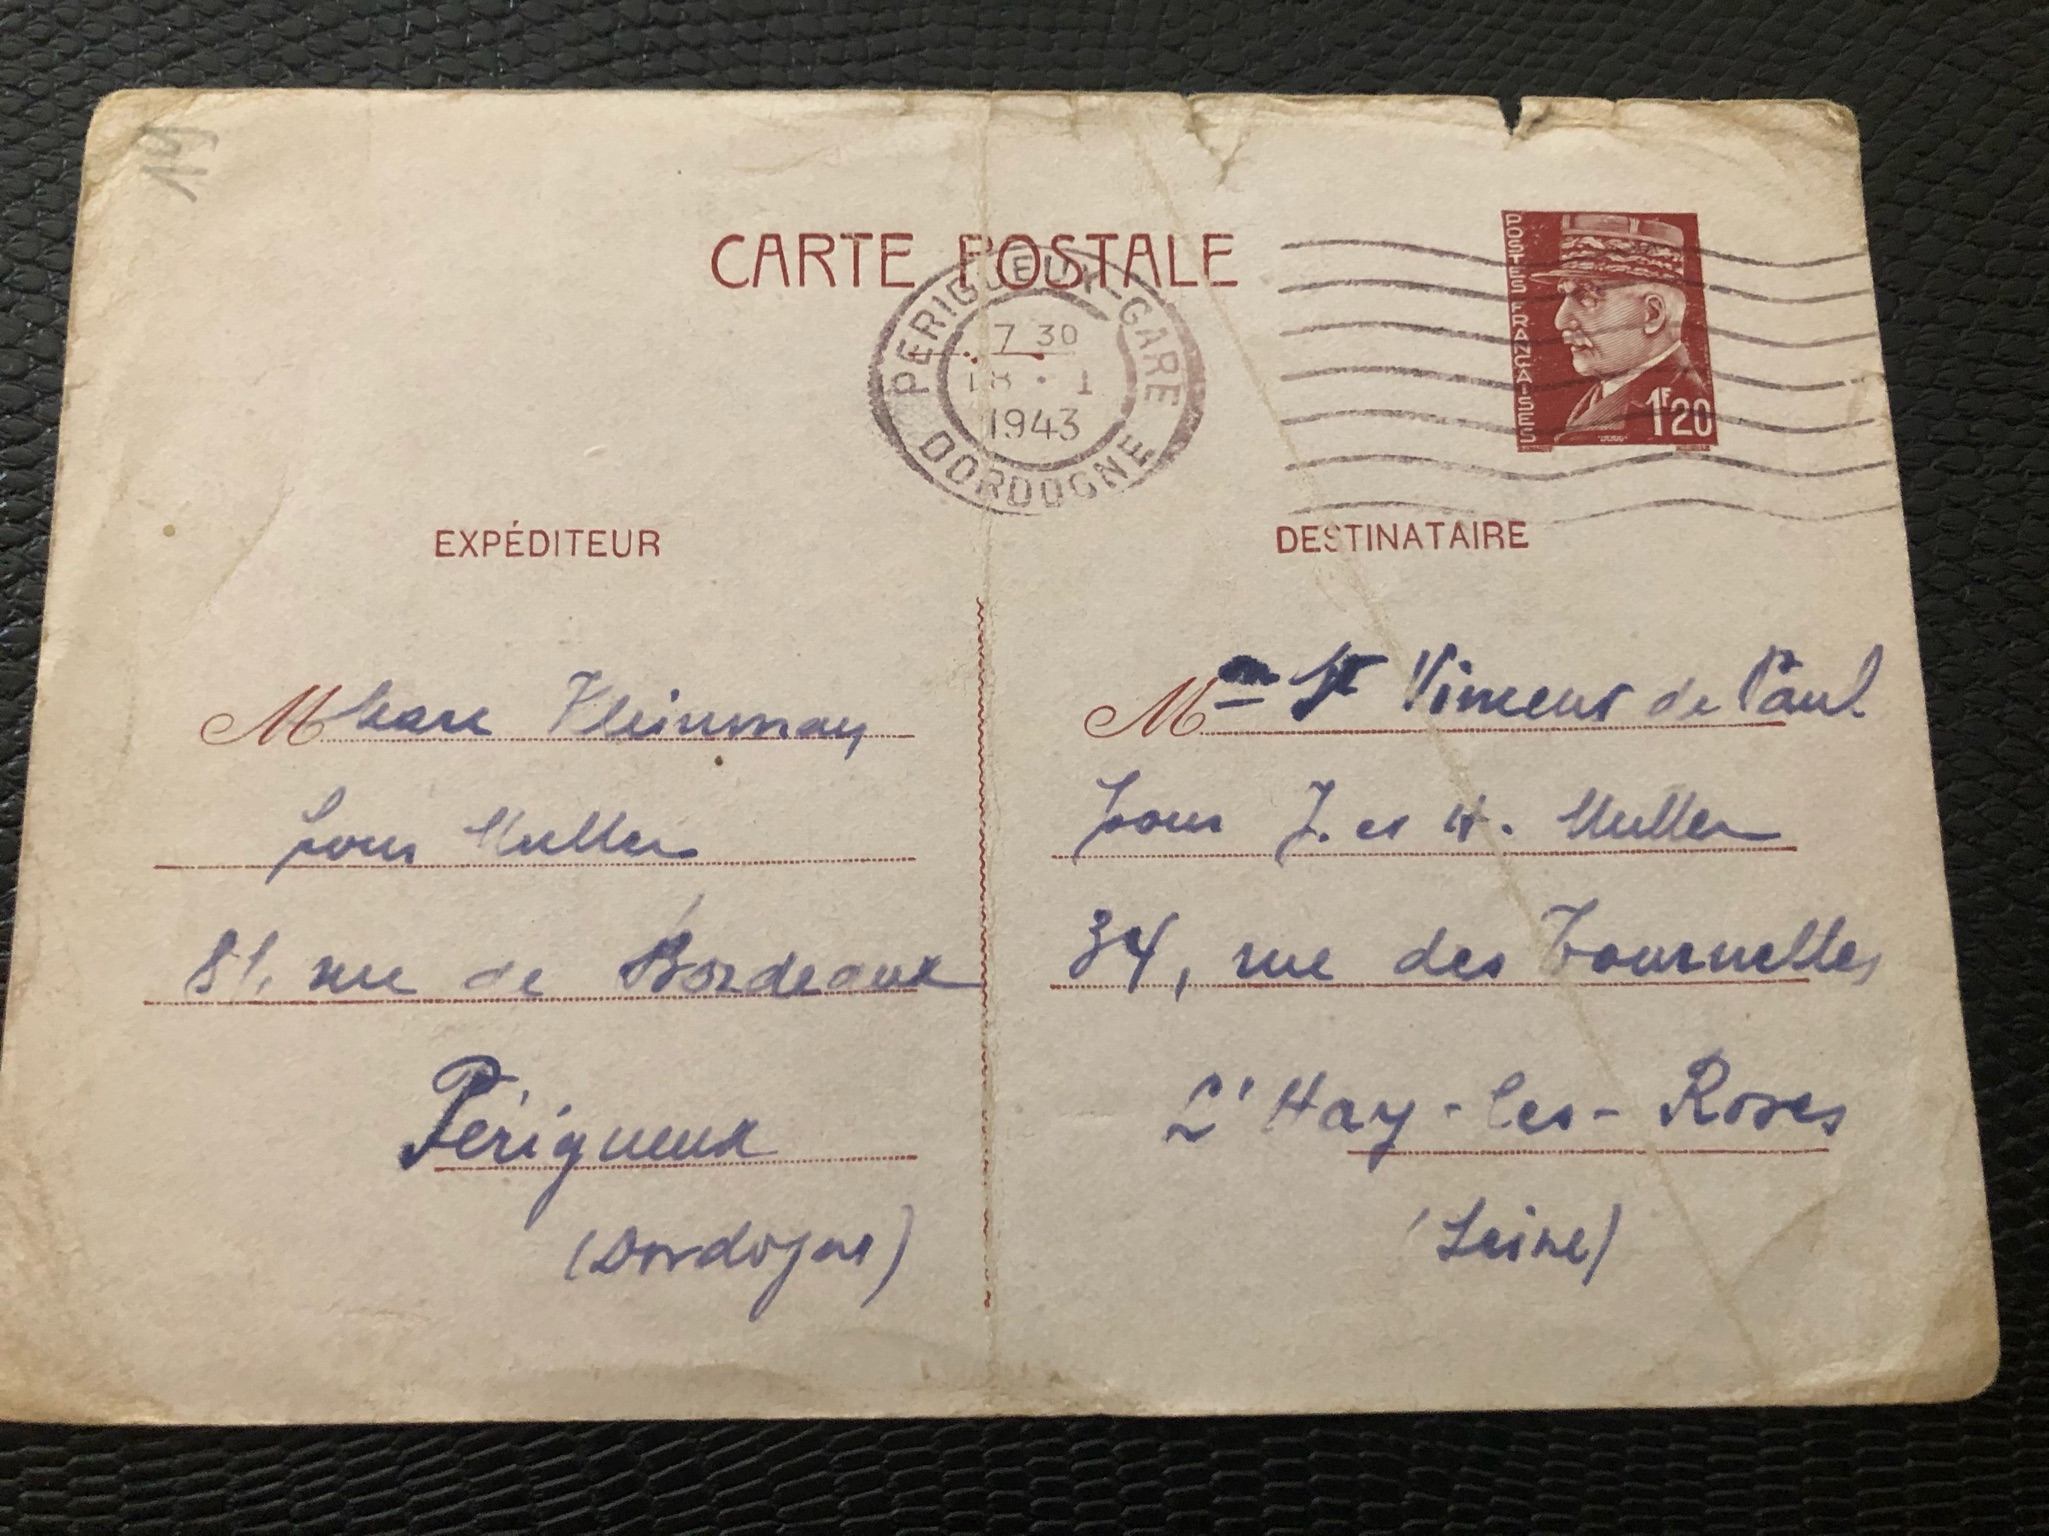 19
CARTE POSTALE
PERIGUEUX-GARE
7 30
18 · 1
1943
DORDOGNE
POSTES FRANÇAISES
1F20
EXPÉDITEUR
DESTINATAIRE
M Marc Kleinmay
pour Muller
81, rue de Bordeaux
Périgueux
(Dordogne)
Mon St Vincent de Paul
pour J. et H. Muller
34, rue des Tournelles
L'Hay-les-Roses
(Seine)